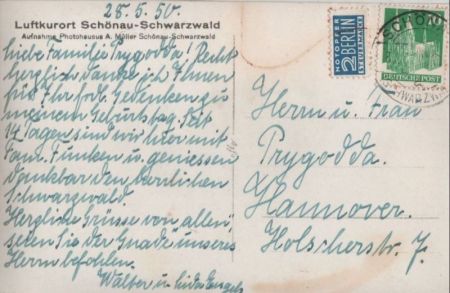 28.5.50.
Luftkurort Schönau-Schwarzwald
Aufnahme Photohausus A. Müller Schönau-Schwarzwald
Liebe Familie Prygodda! Recht
herzlich danke ich Ihnen
für Ihr frdl. Gedenken zu
meinem Geburtstag. Seit
14 Tagen sind wir hier mit
Fam. Funken u. geniessen
dankbar den herrlichen
Schwarzwald.
Herzliche Grüsse von allen,
seien Sie der Gnade unseres
Herrn befohlen.
Walter u.
NOTOPFER
2 BERLIN
STEUERMARKE
SCHÖNAU
SCHWARZW
DEUTSCHE POST
Herrn u. Frau
Prygodda.
Hannover.
Holscherstr. 7.